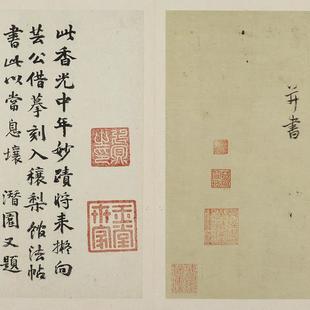 并書
此香光中年妙蹟時來擬向
芸公借摹刻入穰梨館法帖
書此以當息壤 潛園又題